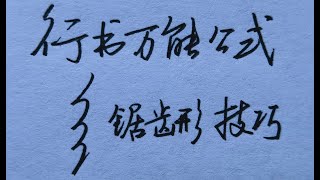 行书万能公式
锯齿形技巧